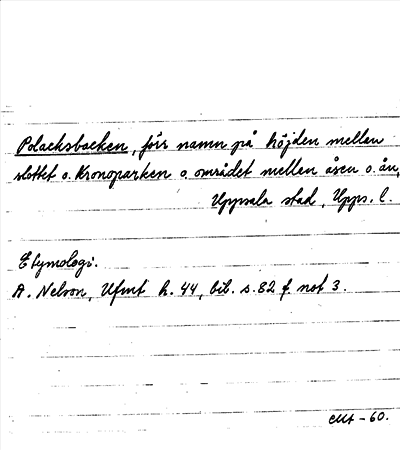 Polacksbacken, förr namn på höjden mellan
slottet o. Kronoparken o. området mellan åsen o. ån,
Uppsala stad, Upps. l.
Etymologi:
A. Nelson, Ufmt h. 44, bil. s. 82 f. not 3.
-60.